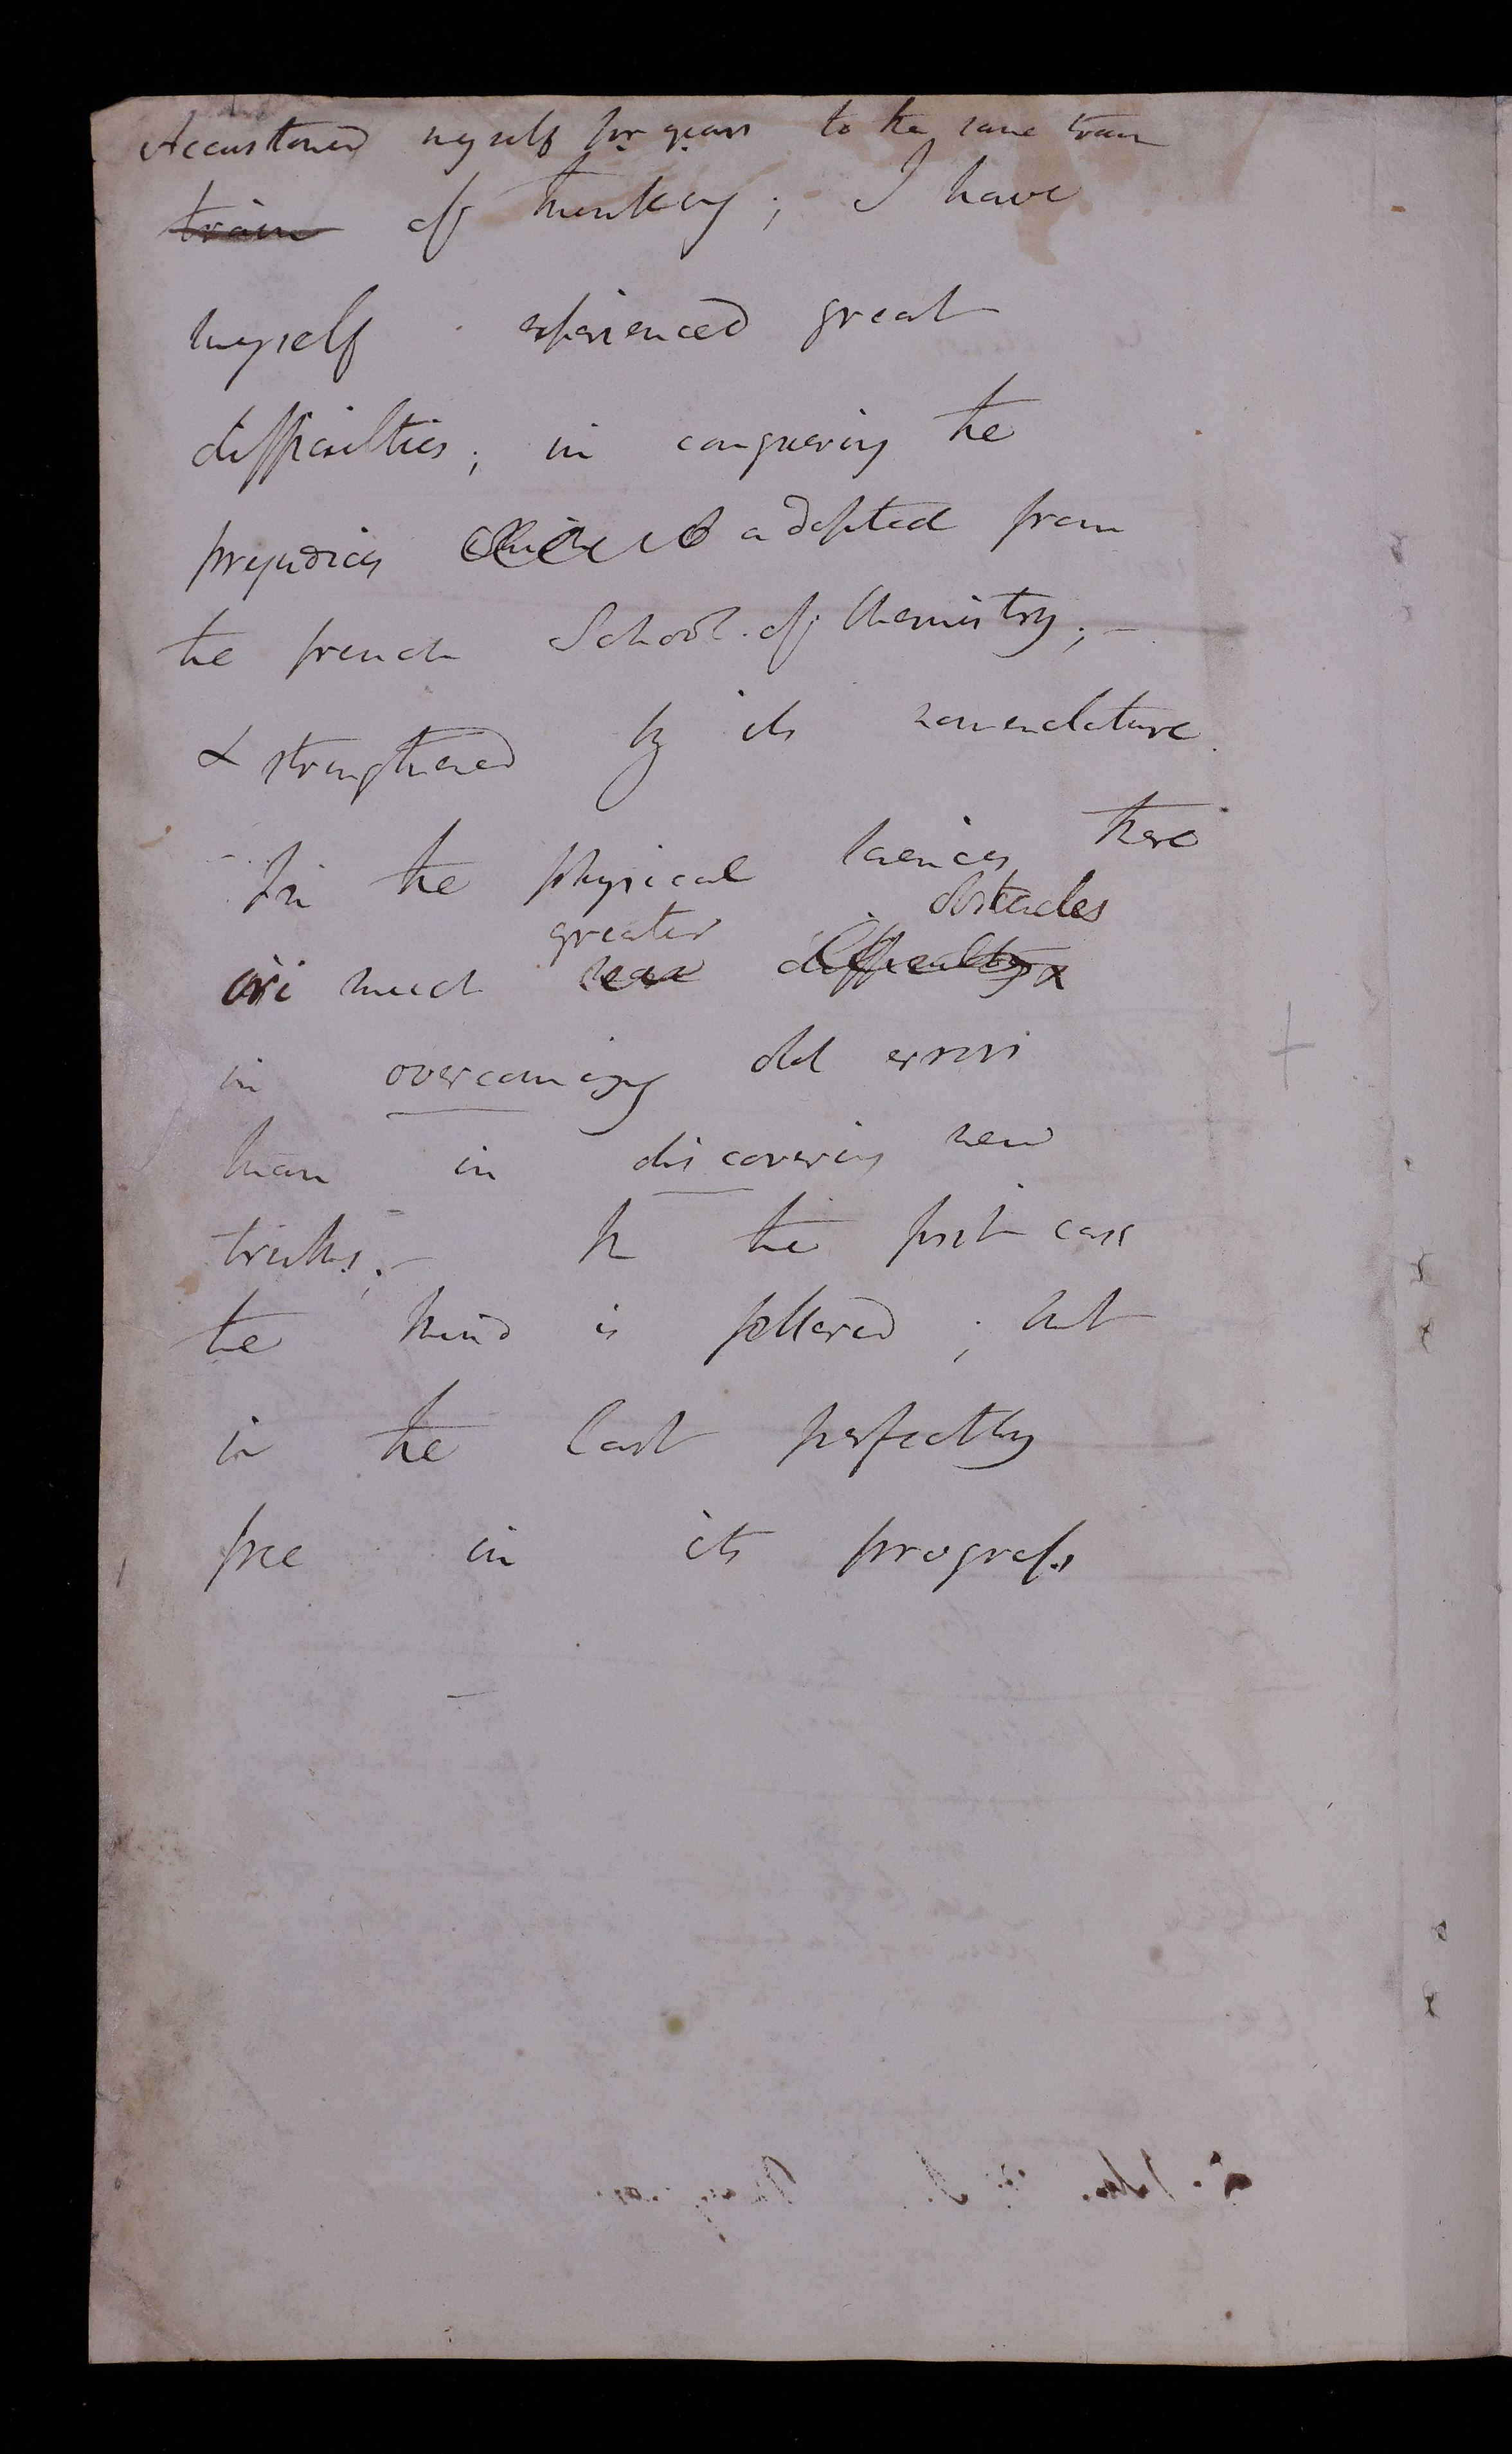 Accustomed myself for years to the same train
train of thinking; I have
myself experienced great
difficulties; in conquering the
prejudices adopted from
the french School of Chemistry; -
& strengthened by its nomenclature.
- In the physical sciences there
greater obstacles
are much more difficulty
in overcoming old errors
than in discovering new
truths; - In the first case
the mind is fettered; but
in the last perfectly
free in its progress